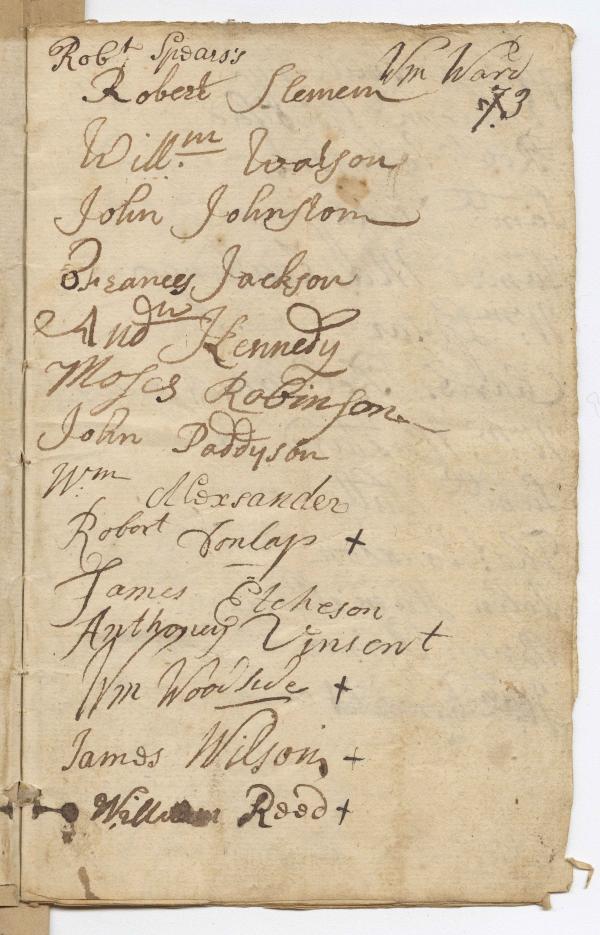 Robt Spears's
Wm Ward
73
Robert Slemem
Willm Watson
John Johnstom
Frances Jackson
Andw Kennedy
Moses Robinson
John Paddyson
Wm Alexsander
Robert Donlap +
James Etcheson
Anthoney Vinsent
Wm Woodside +
James Wilson +
William Reed +